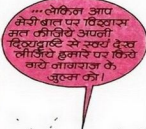 ...लेकिन आप
मेरी बात पर विश्वास
मत कीजिये अपनी
दिव्यदृष्टि से स्वयं देख
लीजिये हमारे पर किये
गये नागराज के
जुल्म को।